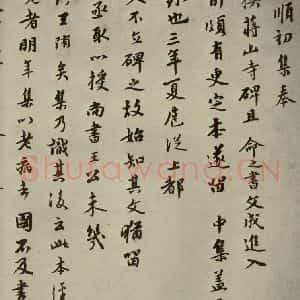 順初集奉
撰蔣山寺碑且命書文成進入
即頗有更定本遂留中集蓋
也三年夏扈從上都
人不立碑之故始知其文猶留
丞取以授尚書王公未幾
陋矣集乃識其後云此本
者明年集以老病去國不及書
Shufawang.CN